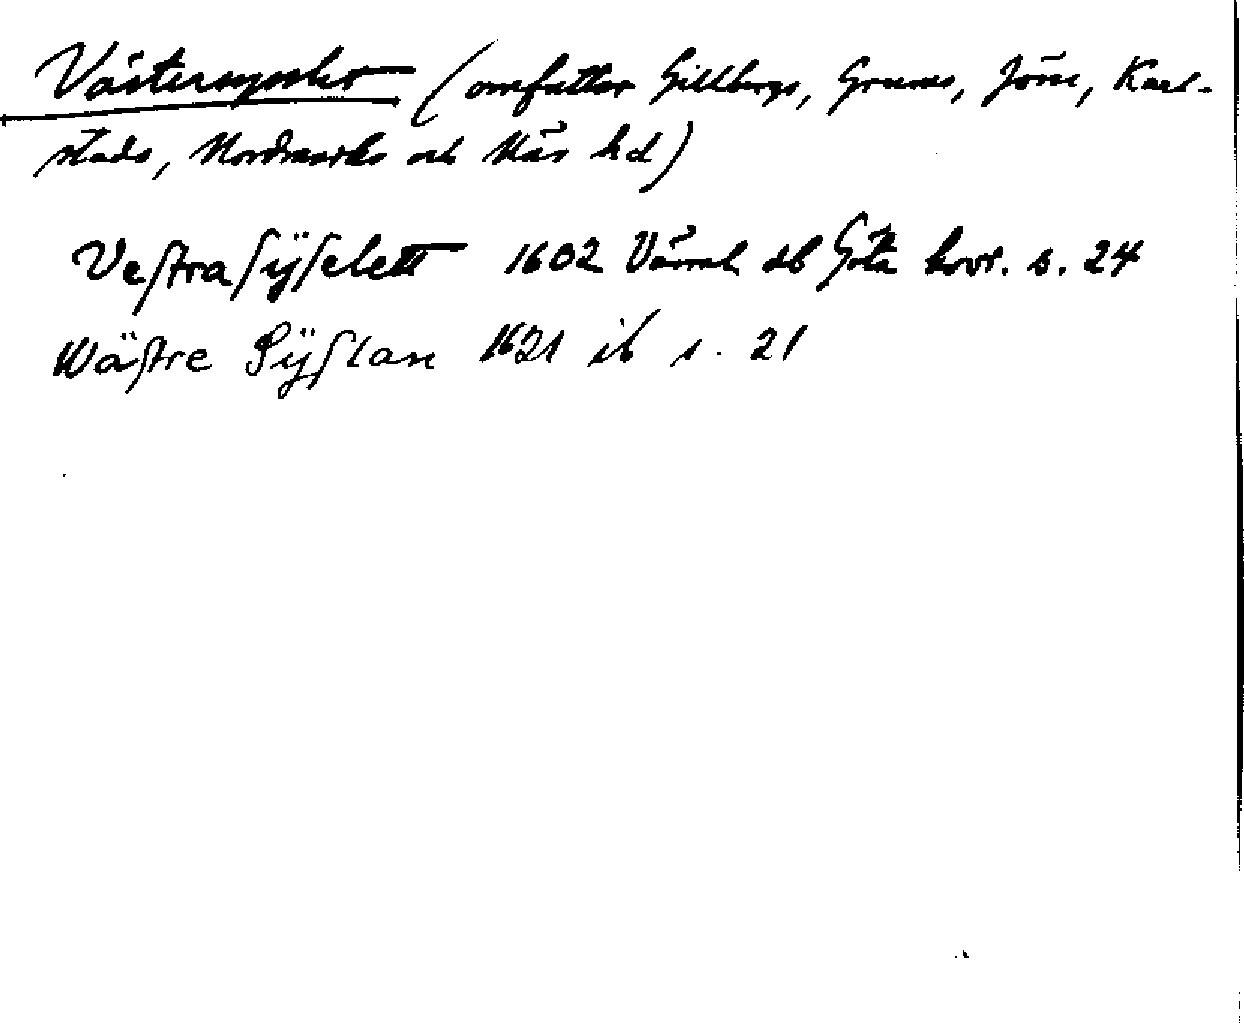 Västersysslet (omfattar Gillbergs, Grums, Jösse, Karl-
stads, Nordmarks och Näs hd)
Veſtra ſÿſelett 1602 Värml db Göta hovr. s. 24
Wäſtre Sÿſlan 1621 ib s. 21